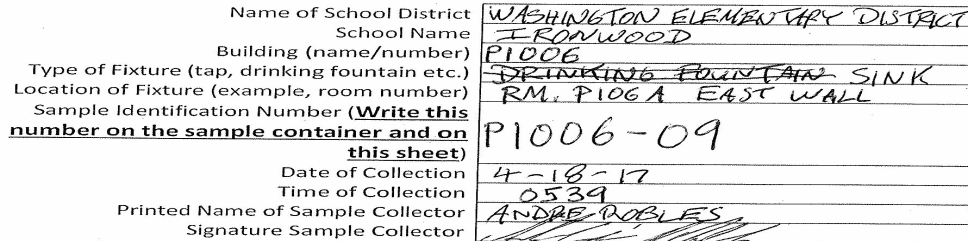 Name of School District WASHINGTON ELEMENTARY DISTRICT
School Name IRONWOOD
Building (name/number) P1006
Type of Fixture (tap, drinking fountain etc.) DRINKING FOUNTAIN SINK
Location of Fixture (example, room number) RM. P106A EAST WALL
Sample Identification Number (Write this
number on the sample container and on P1006-09
this sheet)
Date of Collection 4-18-17
Time of Collection 0539
Printed Name of Sample Collector ANDRE ROBLES
Signature Sample Collector